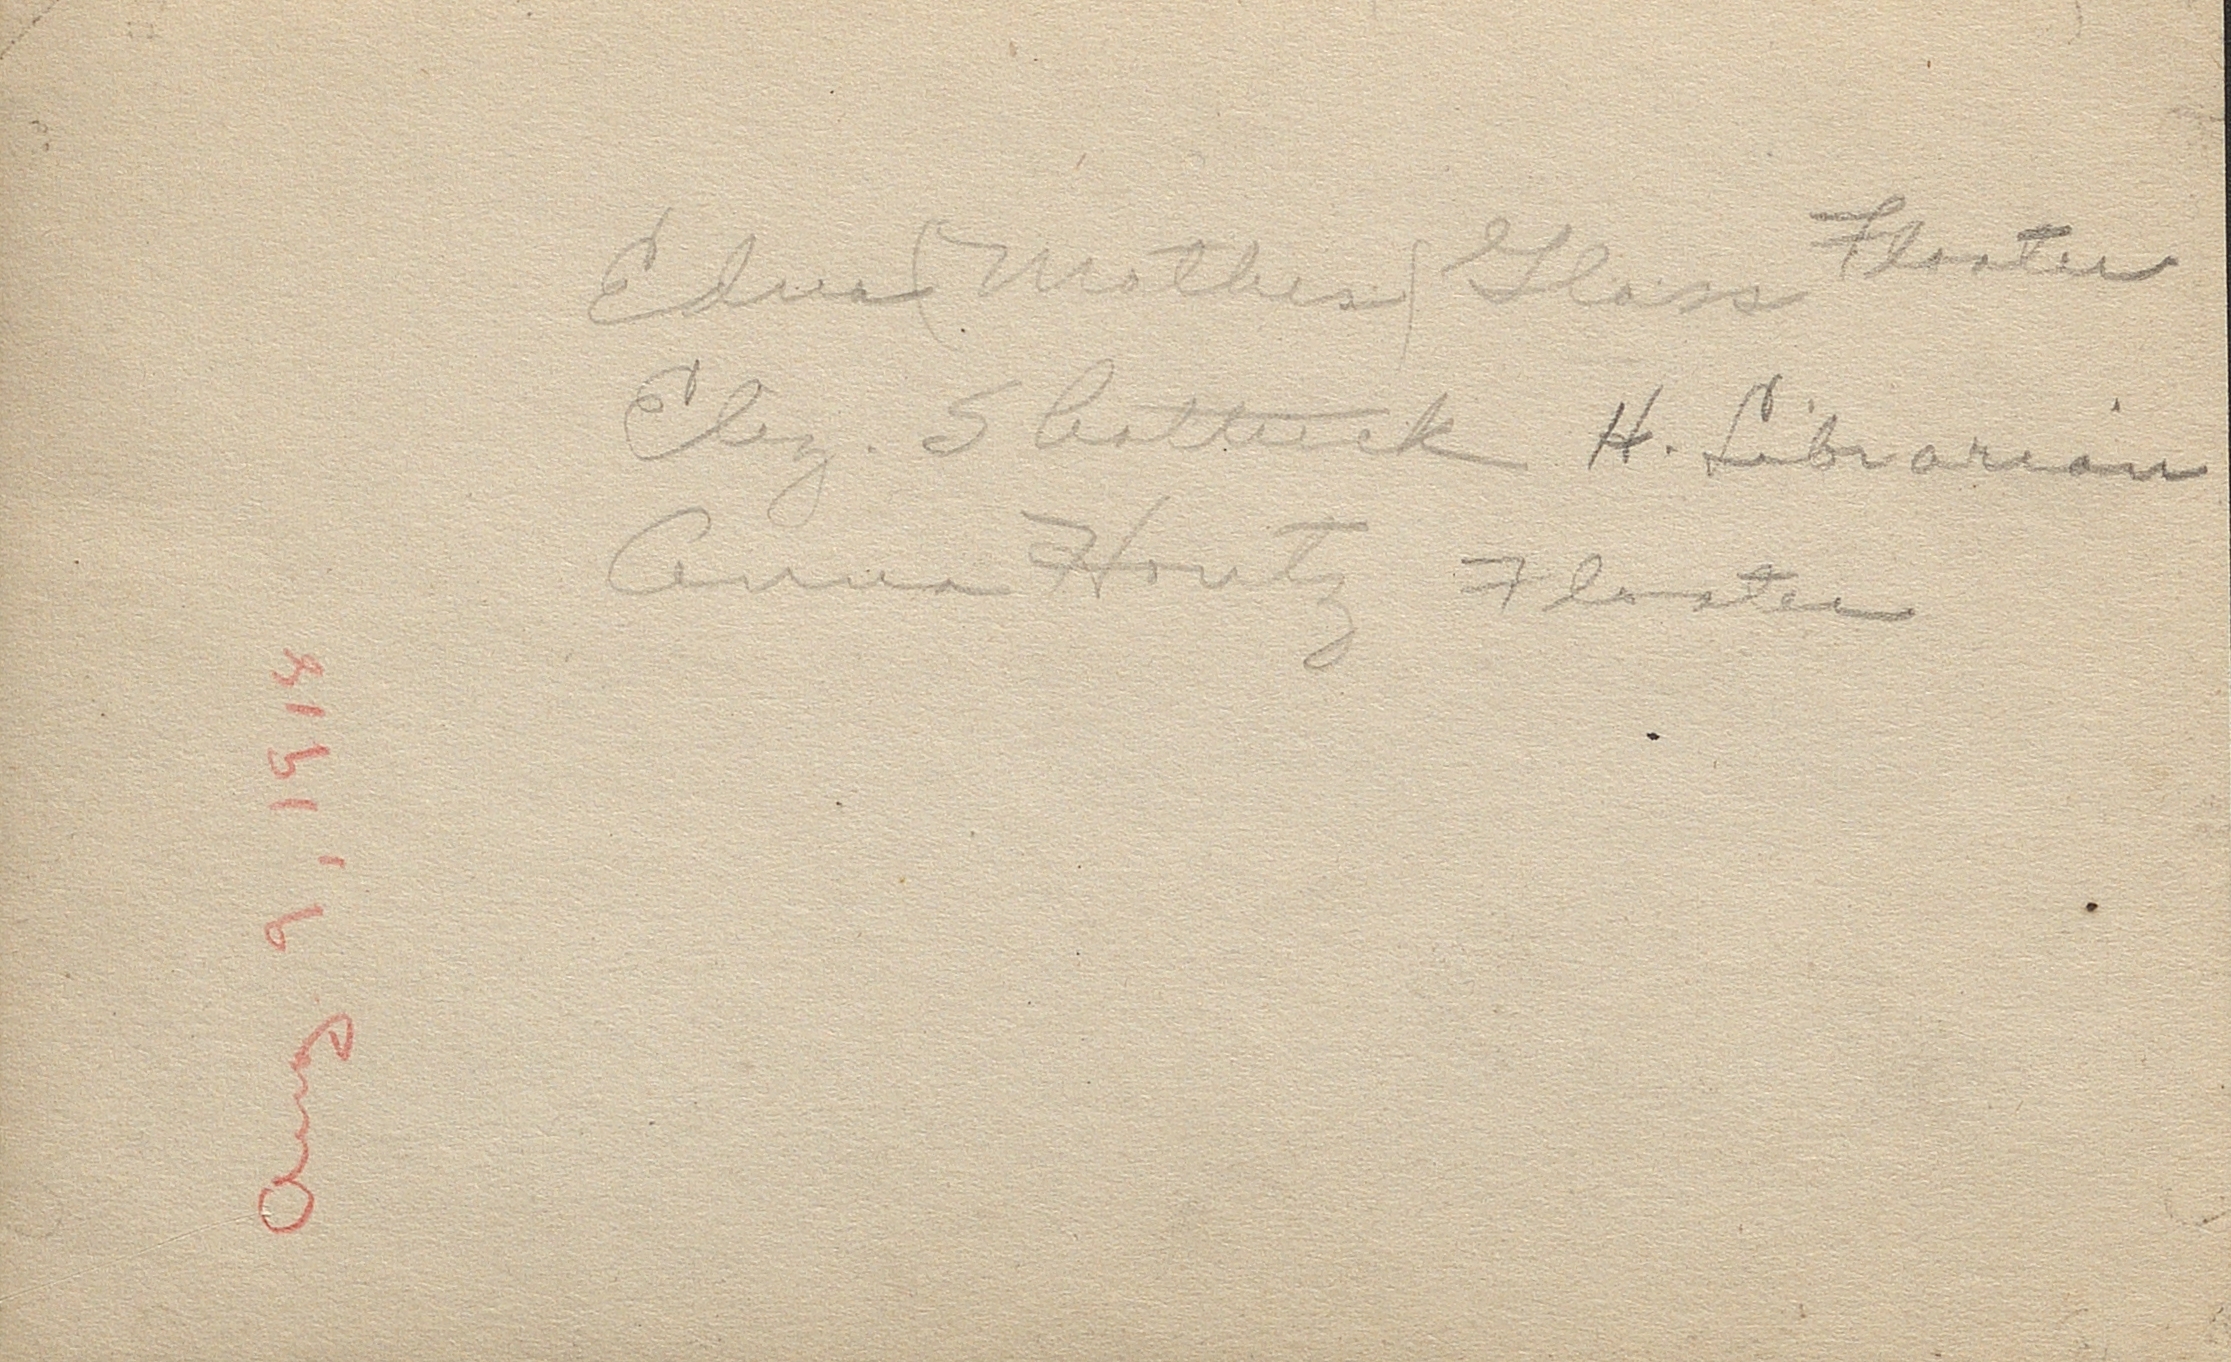 Edna (Mother) Glass Floater
Eliz. Shattuck H. Librarian
Anna Houtz Floater
Aug 9, 1914